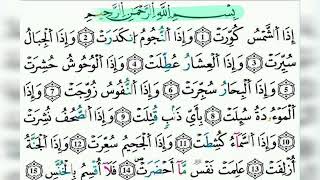 بِسْمِ اللَّهِ الرَّحْمَٰنِ الرَّحِيمِ
إِذَا الشَّمْسُ كُوِّرَتْ ١ وَإِذَا النُّجُومُ انكَدَرَتْ ٢ وَإِذَا الْجِبَالُ
سُيِّرَتْ ٣ وَإِذَا الْعِشَارُ عُطِّلَتْ ٤ وَإِذَا الْوُحُوشُ حُشِرَتْ
٥ وَإِذَا الْبِحَارُ سُجِّرَتْ ٦ وَإِذَا النُّفُوسُ زُوِّجَتْ ٧ وَإِذَا
الْمَوْءُدَةُ سُئِلَتْ ٨ بِأَيِّ ذَنبٍ قُتِلَتْ ٩ وَإِذَا الصُّحُفُ نُشِرَتْ
١٠ وَإِذَا السَّمَاءُ كُشِطَتْ ١١ وَإِذَا الْجَحِيمُ سُعِّرَتْ ١٢ وَإِذَا الْجَنَّةُ
أُزْلِفَتْ ١٣ عَلِمَتْ نَفْسٌ مَّا أَحْضَرَتْ ١٤ فَلَا أُقْسِمُ بِالْخُنَّسِ ١٥